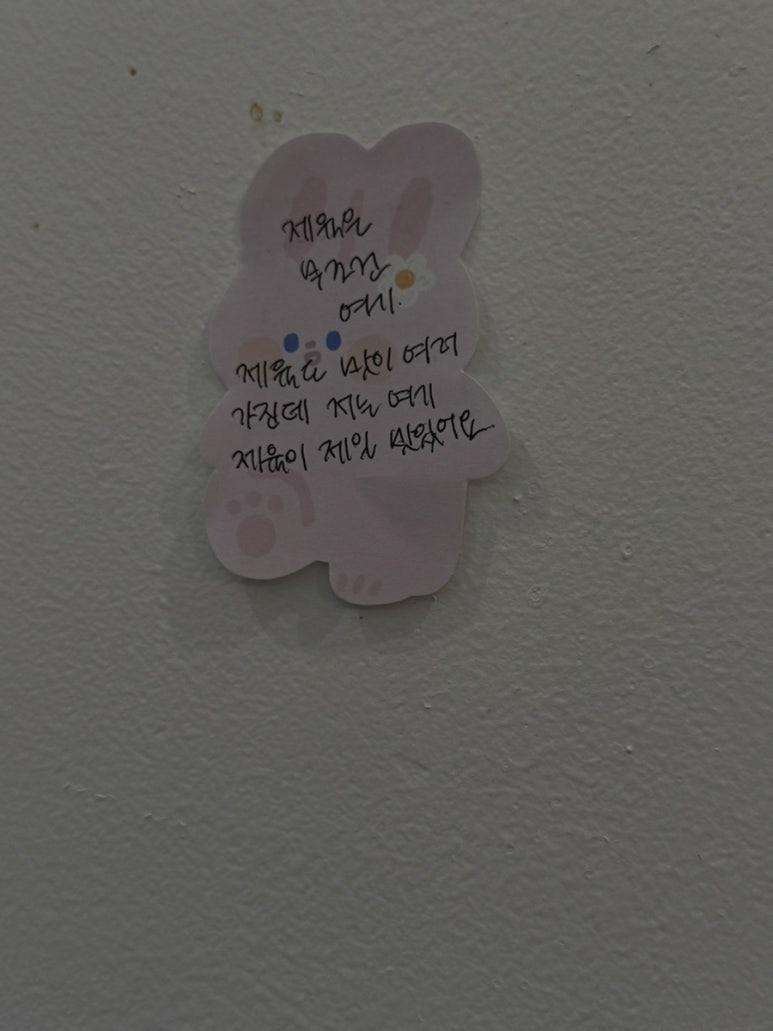 제육은
무조건
여기.
제육도 맛이 여러
가진데 저는 여기
제육이 제일 맛있어요